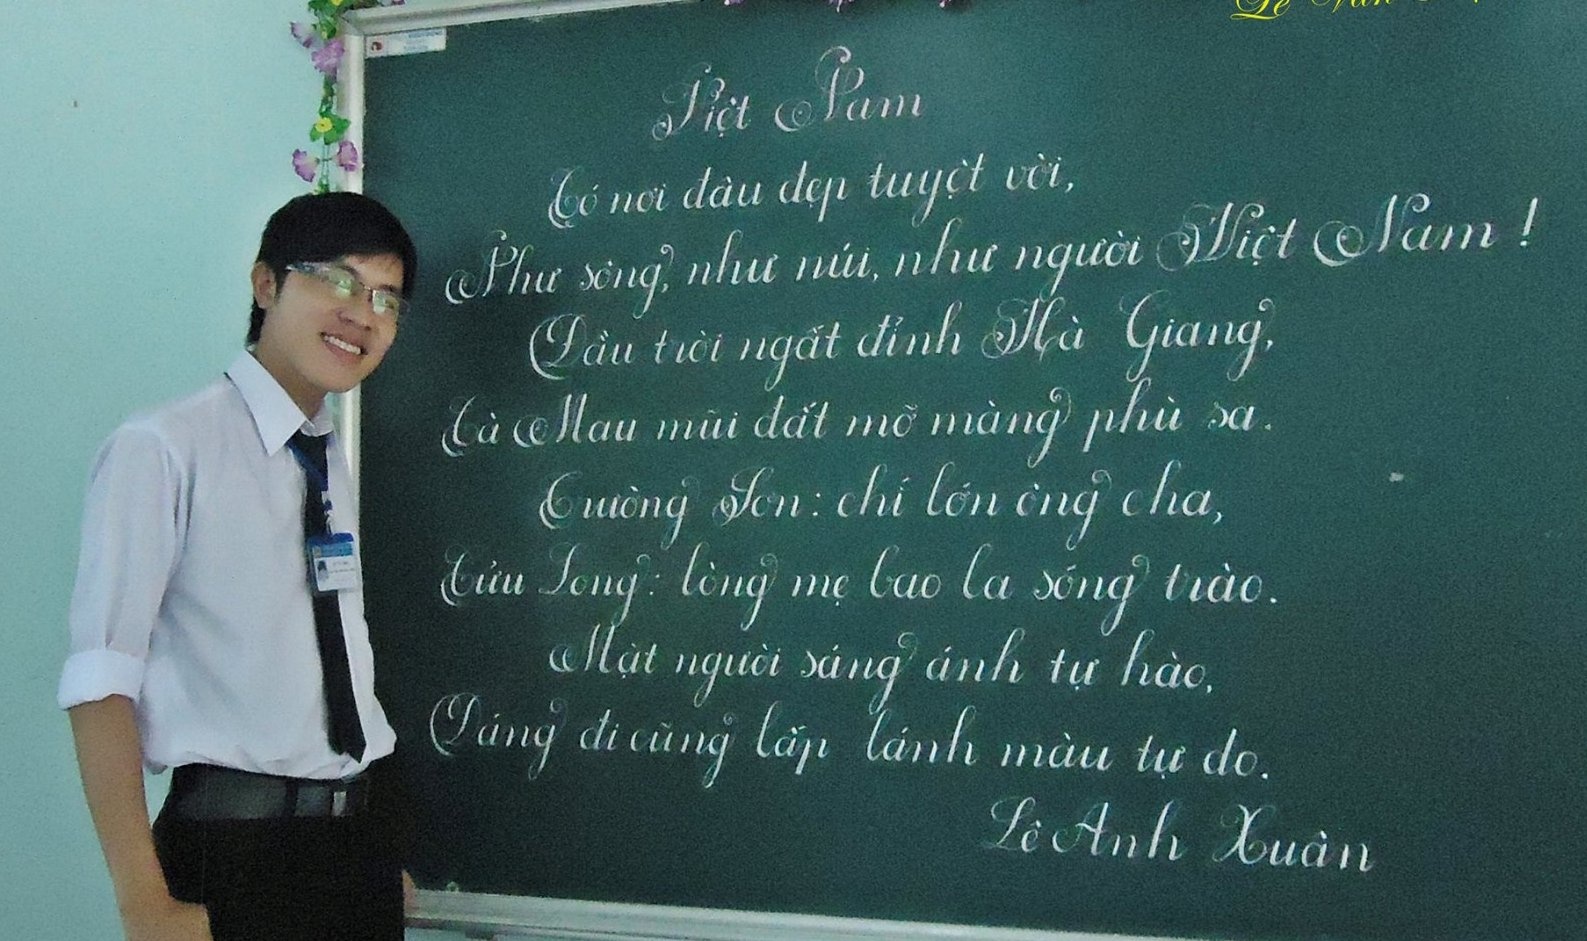 Việt Nam
Có nơi đâu đẹp tuyệt vời,
Như sông, như núi, như người Việt Nam !
Đầu trời ngất đỉnh Hà Giang,
Cà Mau mũi đất mỡ màng phù sa.
Trường Sơn: chí lớn ông cha,
Cửu Long: lòng mẹ bao la sóng trào.
Mặt người sáng ánh tự hào,
Dáng đi cũng lấp lánh màu tự do.
Lê Anh Xuân